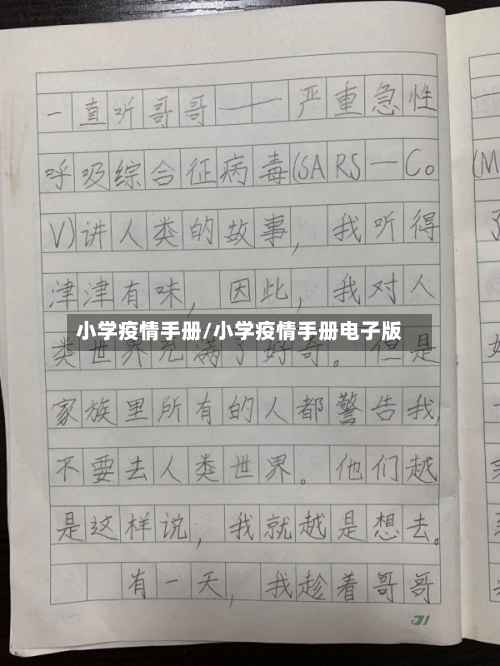 一直听哥哥——严重急性
呼吸综合征病毒(SARS—Co
V)讲人类的故事，我听得
津津有味，因此，我对人
小学疫情手册/小学疫情手册电子版
类世界充满了好奇。但是
家族里所有的人都警告我，
不要去人类世界。他们越
是这样说，我就越是想去。
有一天，我趁着哥哥
(M